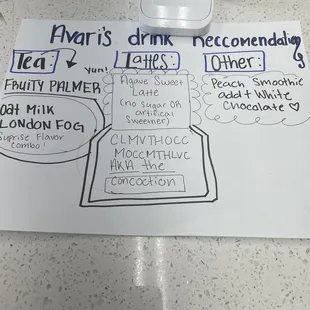 Avari's drink Reccomendations
Tea:
yum!
FRUITY PALMER
Oat Milk
LONDON FOG
Surprise Flavor
combo!
Lattes:
Agave Sweet
Latte
(no sugar OR
artifical
sweetner)
CLMVTHOCC
MOCCMTHLVC
AKA the
concoction
Other:
Peach Smoothie
add + White
Chocolate ♡